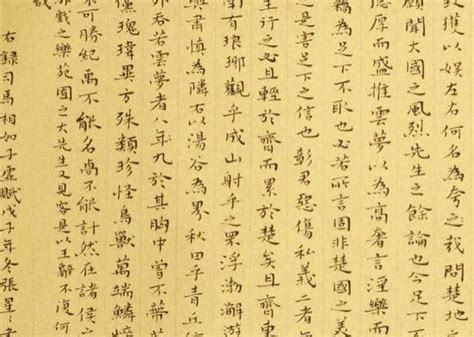 獲以娛左右何名為夸之我問楚地之
願聞大國之風烈先生之餘論也今足下不
德厚而盛推雲夢以為高奢言淫樂而
竊為足下不取也必若所言固非楚國之美
是害足下之信也彰君惡傷私義二者無
生行之必且輕於齊而累於楚矣且齊東
南有琅琊觀乎成山射乎之罘浮渤澥游
與肅慎為隣右以湯谷為界秋田乎青丘
吞若雲夢者八九於其胸中曾不蒂
儻瑰瑋異方殊類珍怪鳥獸萬端鱗崪
不可勝紀禹不能名卨不能計然在諸侯
戲之樂苑囿之大先生又見客是以王辭不復何
哉
右錄司馬相如子虛賦戊子年冬張星